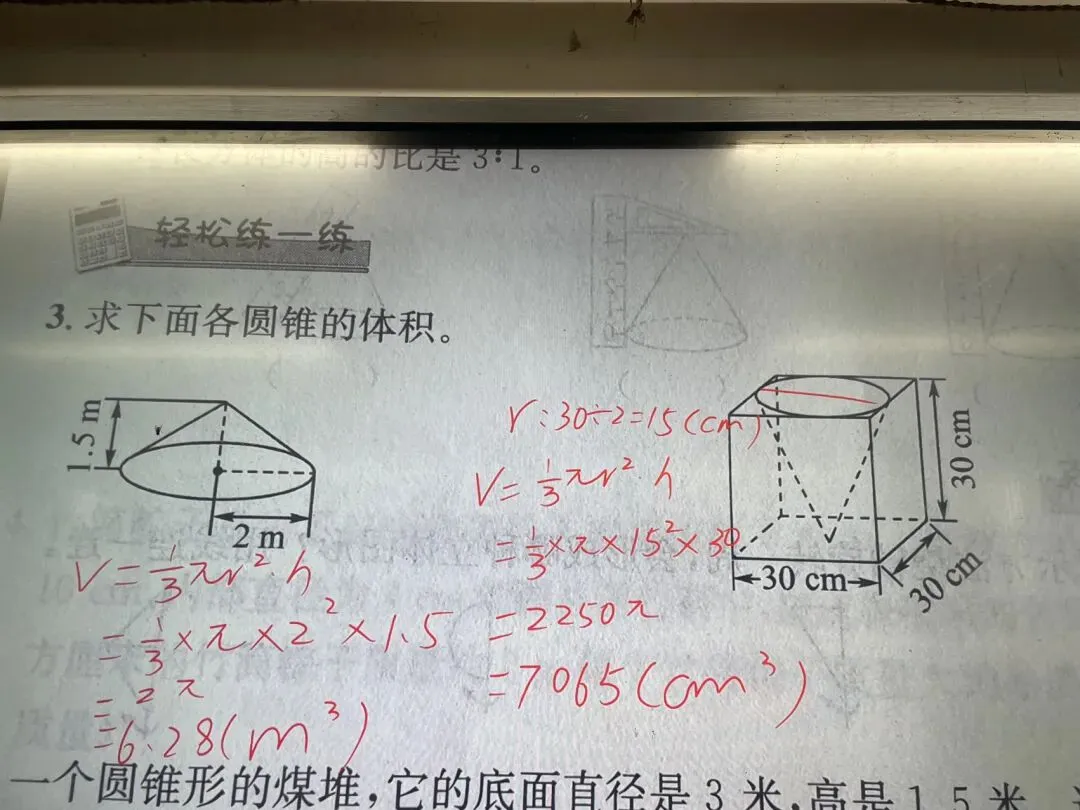 长方体的高的比是3∶1。
轻松练一练
3. 求下面各圆锥的体积。
1.5 m
2 m
V=1/3πr²·h
=1/3×π×2²×1.5
=2π
=6.28(m³)
r:30÷2=15(cm)
V=1/3πr²·h
=1/3×π×15²×30
=2250π
=7065(cm³)
30 cm
30 cm
30 cm
一个圆锥形的煤堆，它的底面直径是3米，高是1.5米